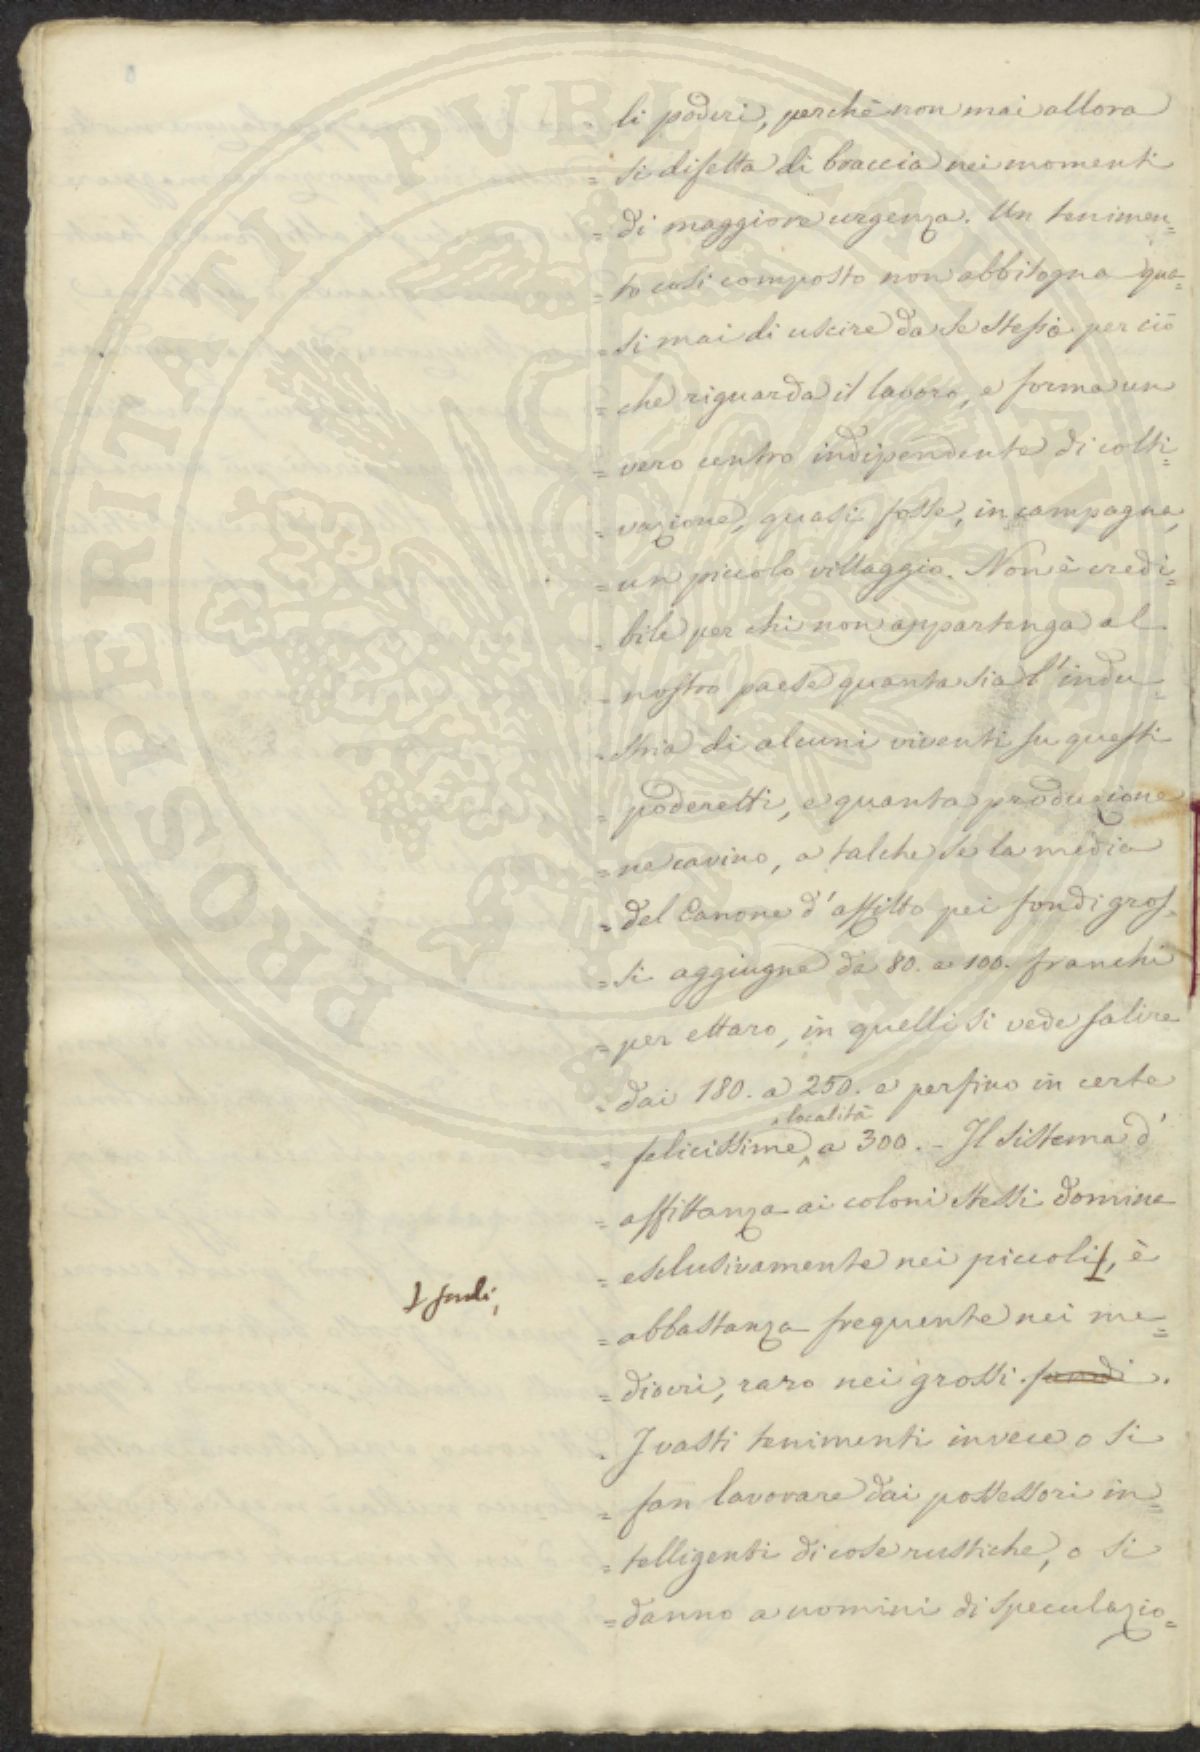 li poderi, perchè non mai allora
= si difetta di braccia nei momenti
= di maggiore urgenza. Un tenimen=
= to così composto non abbisogna qua=
= si mai di uscire da se stesso per ciò
= che riguarda il lavoro, e forma un
= vero centro indipendente di colti=
= vazione, quasi fosse, in campagna,
= un piccolo villaggio. Non è credi=
= bile per chi non appartenga al
= nostro paese quanta sia l'indu=
= stria di alcuni viventi su questi
= poderetti, e quanta produzione
= ne cavino, a talchè se la media
= del Canone d'affitto pei fondi gros=
= si aggiugne da 80. a 100. franchi
= per ettaro, in quelli si vede salire
= dai 180. a 250. e perfino in certe
località
= felicissime ^ a 300. - Il sistema d'
= affittanza ai coloni stessi domina
= esclusivamente nei piccoli ⟊, è
⟊ fondi,
= abbastanza frequente nei me=
= diocri, raro nei grossi fondi.
= I vasti tenimenti invece o si
= fan lavorare dai possessori in=
= telligenti di cose rustiche, o si
= danno a uomini di speculazio=
PROSPERITATI PUBLICAE